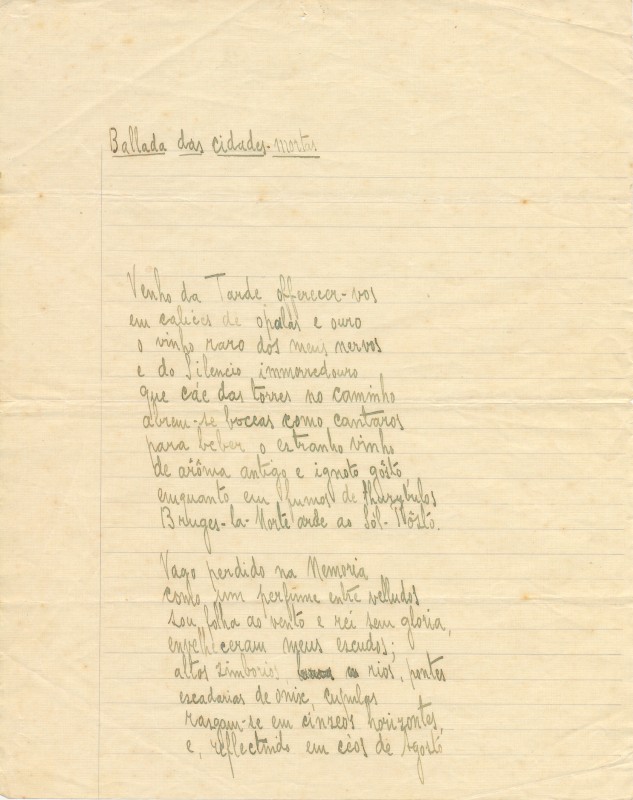 Ballada das cidades-mortas
Venho da Tarde offerecer-vos
em calices de opalas e ouro
o vinho raro dos meus nervos
e do Silencio immorredouro
que cáe das torres no caminho
abrem-se boccas como cantaros
para beber o estranho vinho
de arôma antigo e ignoto gôsto
emquanto em fumos de thuribulos
Bruges-la-Morte arde ao Sól-Pôsto.
Vago perdido na Memoria
como um perfume entre velludos
sou folha ao vento e rei sem gloria,
envelheceram meus escudos;
altos zimborios, rios, pontes
escadarias de onix, cupulas
rasgam-se em cinzeos horizontes
e, reflectindo em céos de Agosto